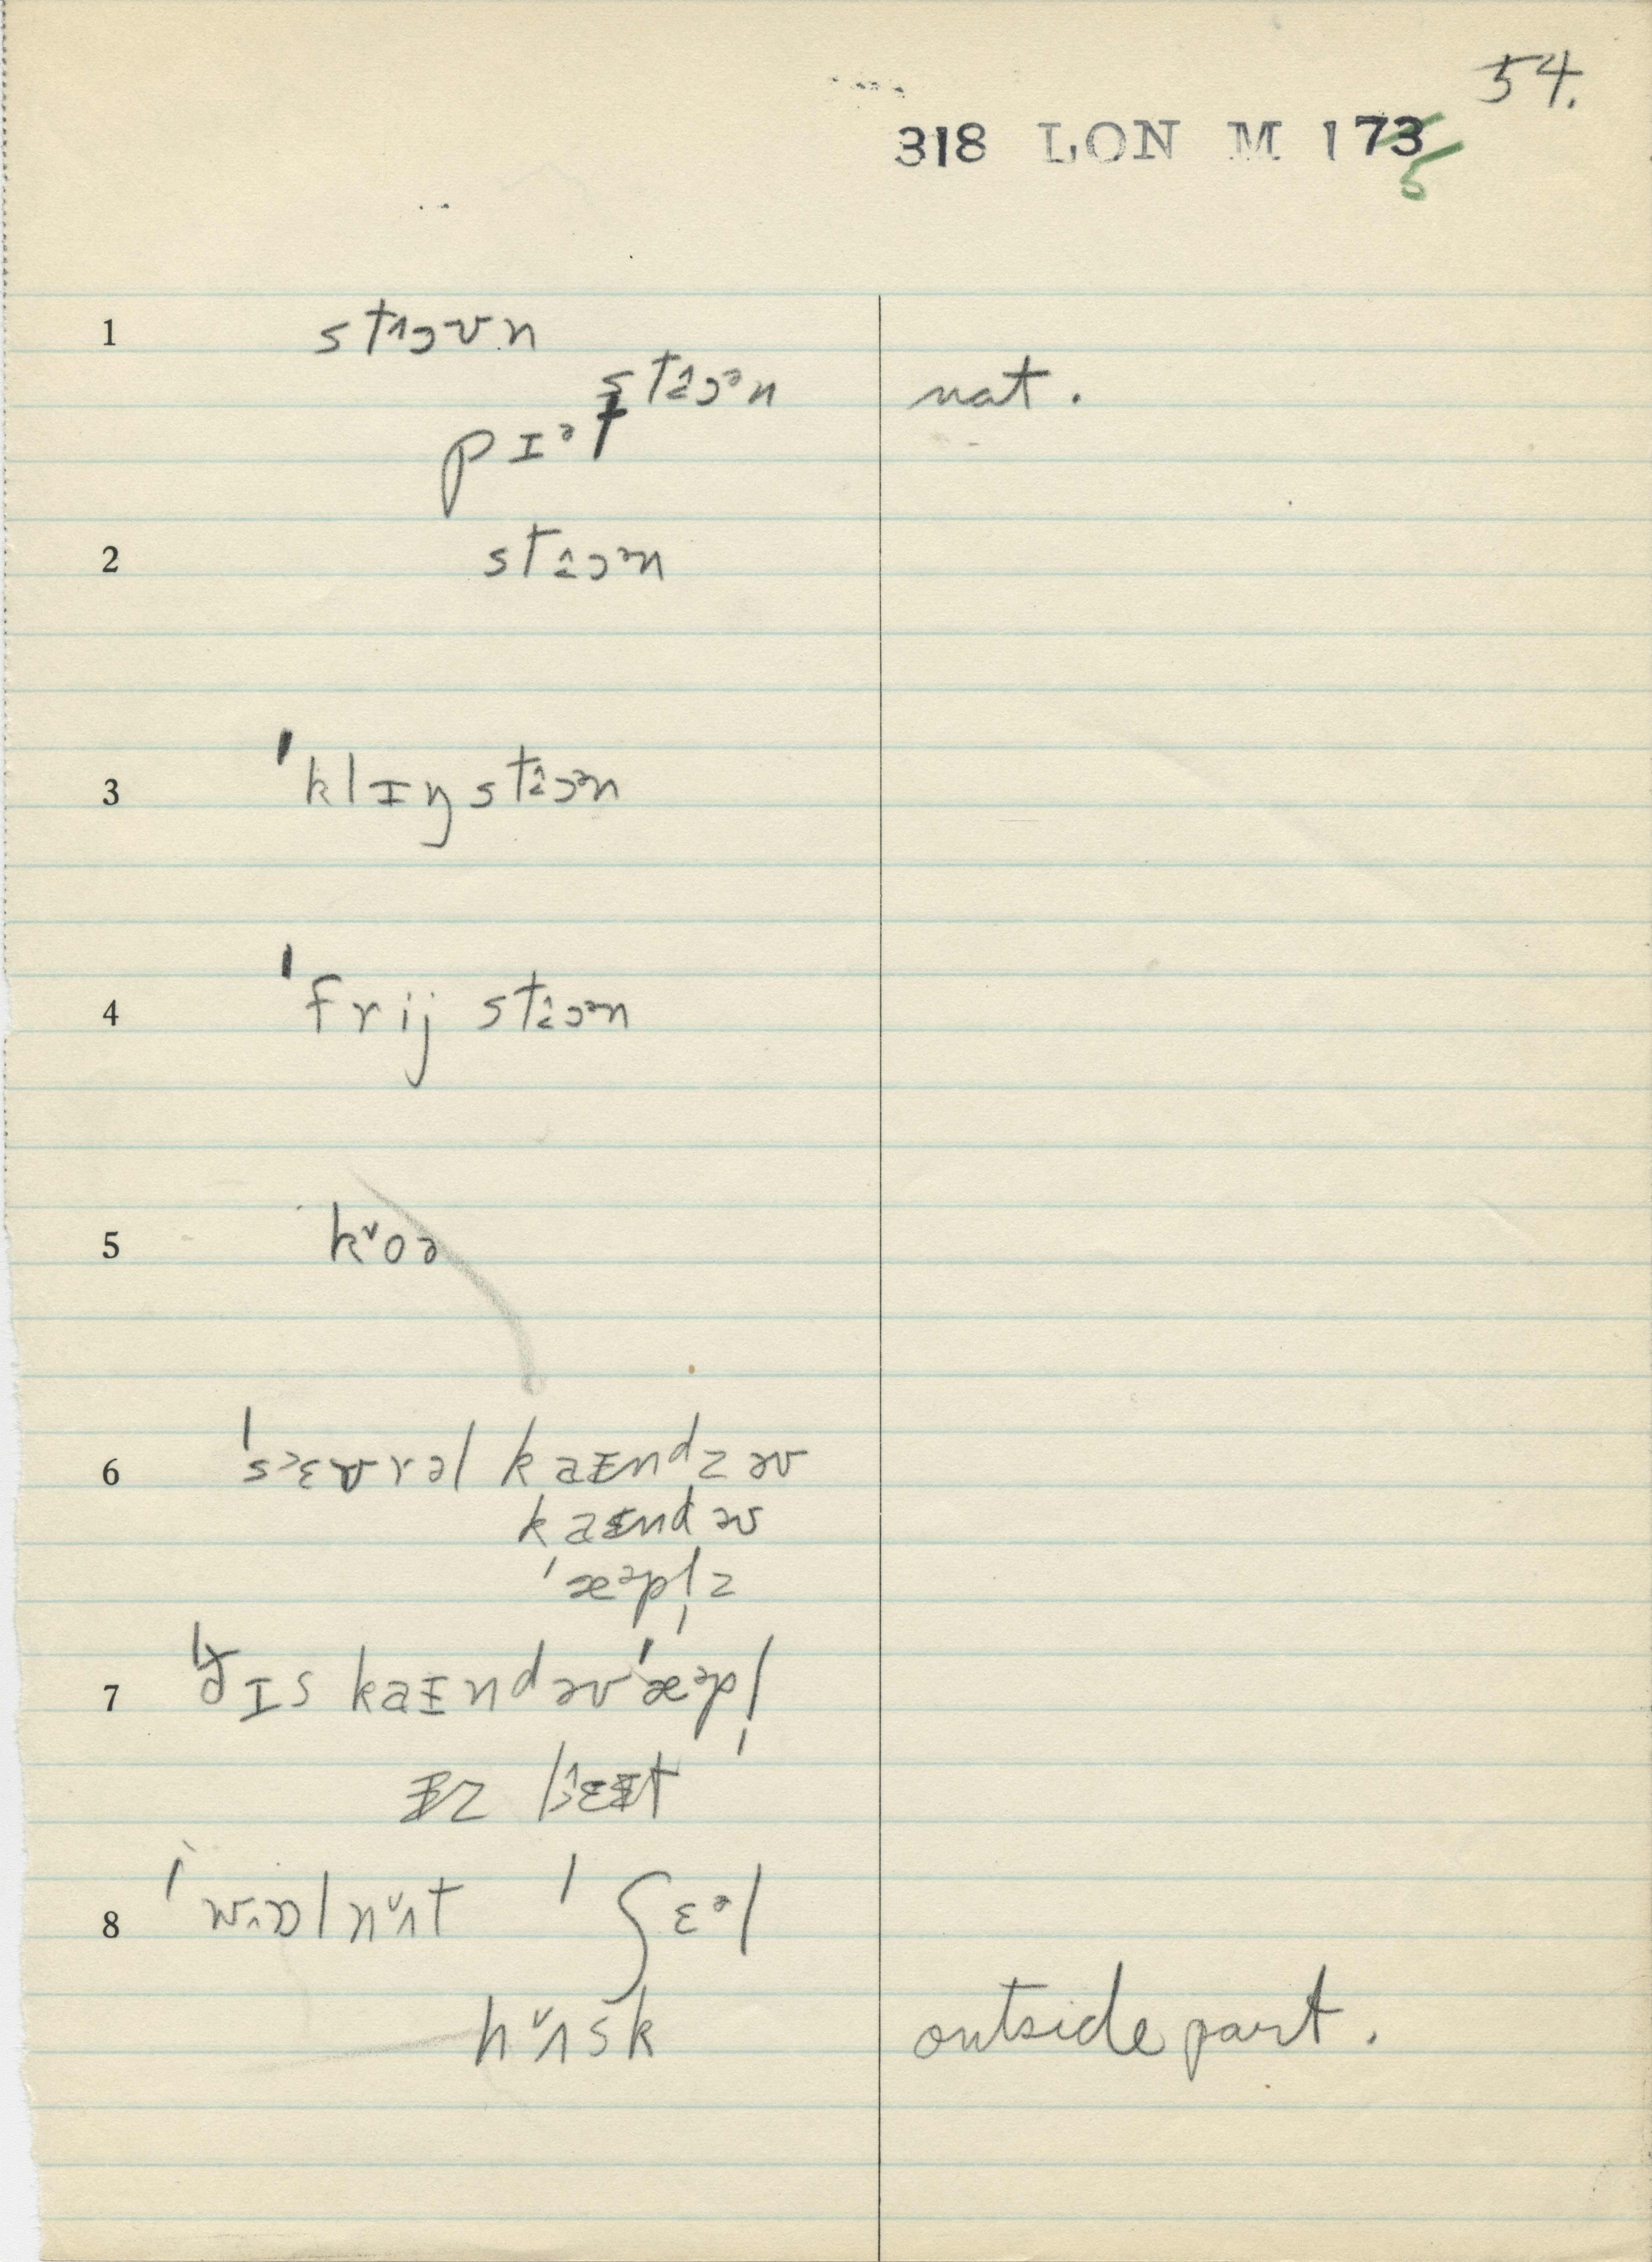 54.
318 LON M 173
5
1 stɔʊn
stɔᵊn nat.
pɪᵊt
2 stɔᵊn
3 ˈklɪŋ stɔᵊn
4 ˈfrij stɔᵊn
5 k˅oə
6 ˈsᵊɛvrəl kaɪndz əv
kaɪnd əv
ˈæᵊpl̩z
7 ðɪs kaɪnd əv ˈæᵊpl̩
8 ˈwɒlnʌ˅t ˈʃɛᵊl
hʌ˅sk outside part.